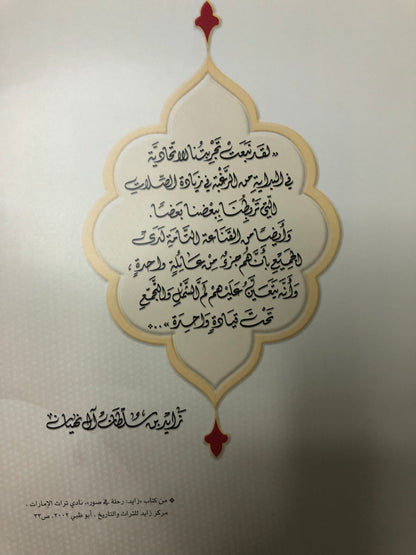 «لقد نبعت تجربتنا الاتحادية
في البداية من الرغبة في زيادة الصلات
التي تربطنا ببعضنا بعضًا.
وأيضًا من القناعة التامة لدى
الجميع بأنهم جزء من عائلة واحدة،
وأنه يتعين عليهم لم الشمل والتجمع
تحت قيادة واحدة»..❖
زايد بن سلطان آل نهيان
❖ من كتاب «زايد: رحلة في صور»، نادي تراث الإمارات،
مركز زايد للتراث والتاريخ، أبوظبي ٢٠٠٢، ص٣٣